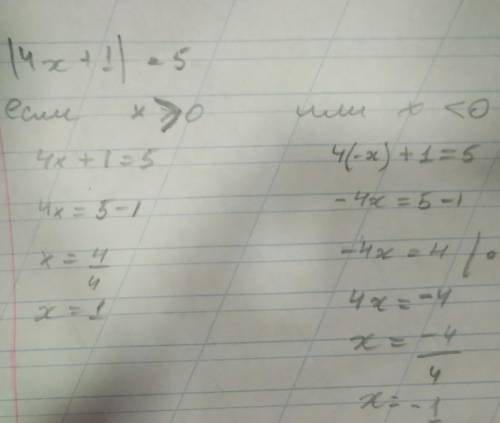 |4x + 1| = 5
если x ⩾ 0 или x < 0
4x + 1 = 5
4x = 5 - 1
x = 4/4
x = 1
4(-x) + 1 = 5
-4x = 5 - 1
-4x = 4 |•
4x = -4
x = -4/4
x = -1